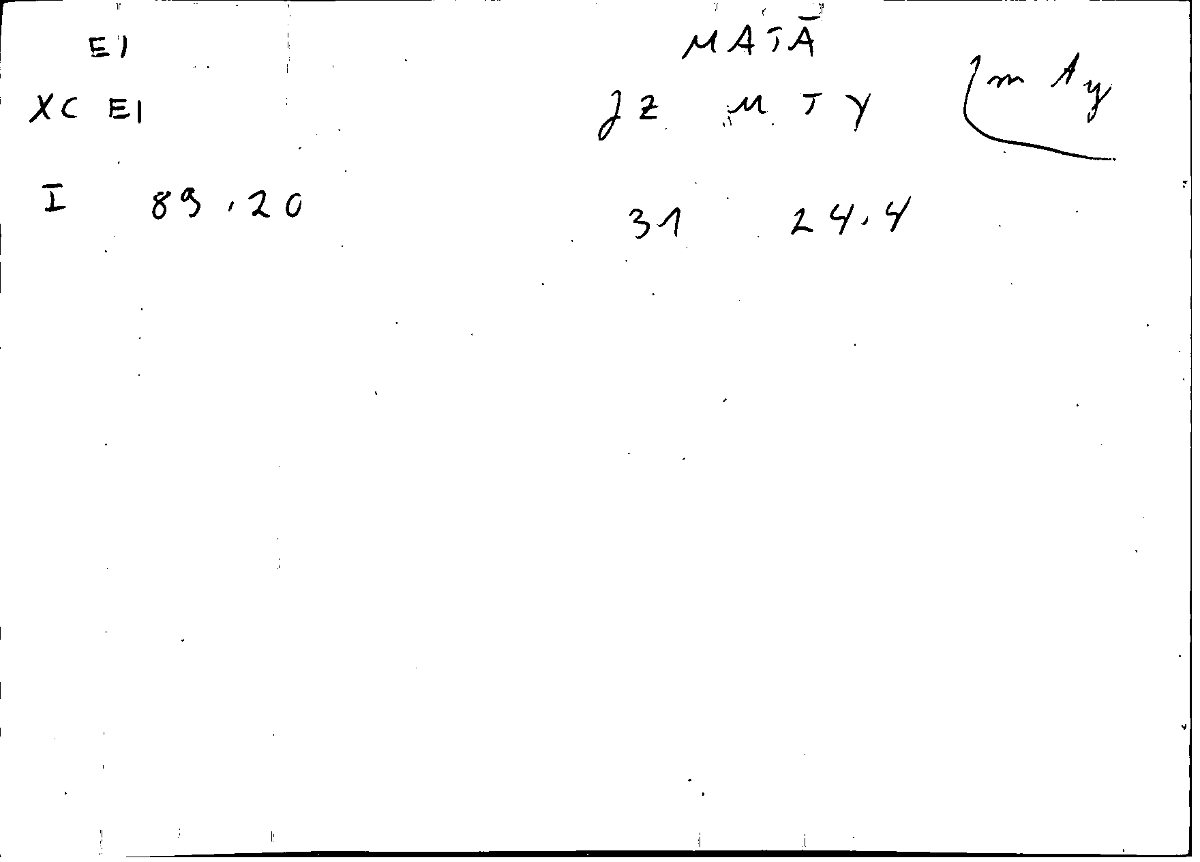 EI MATĀ
XC EI JZ M T Y m A y
I 89.20 31 24.4